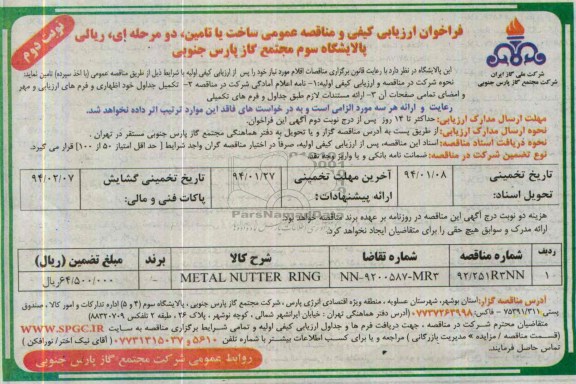 نوبت دوم
فراخوان ارزیابی کیفی و مناقصه عمومی ساخت یا تامین، دو مرحله ای، ریالی
پالایشگاه سوم مجتمع گاز پارس جنوبی
شرکت ملی گاز ایران
شرکت مجتمع گاز پارس جنوبی
این پالایشگاه در نظر دارد با رعایت قانون برگزاری مناقصات اقلام مورد نیاز خود را پس از ارزیابی کیفی اولیه با شرایط ذیل از طریق مناقصه عمومی (با اخذ سپرده) تامین نماید:
نحوه شرکت در مناقصه و ارزیابی کیفی اولیه: ۱- نامه اعلام آمادگی شرکت در مناقصه ۲- تکمیل جداول خود اظهاری و فرم های ارزیابی و مهر
و امضای تمامی صفحات آن ۳- ارائه مستندات لازم طبق جداول و فرم های تکمیلی
رعایت و ارائه هر سه مورد الزامی است و به درخواست های فاقد این موارد ترتیب اثر داده نخواهد شد.
مهلت ارسال مدارک ارزیابی: حداکثر تا ۱۴ روز پس از درج نوبت دوم آگهی این فراخوان.
نحوه ارسال مدارک ارزیابی: از طریق پست به آدرس مناقصه گزار و یا تحویل به دفتر هماهنگی مجتمع گاز پارس جنوبی مستقر در تهران.
نحوه دریافت اسناد مناقصه: اسناد این مناقصه، پس از ارزیابی کیفی اولیه، صرفاً در اختیار مناقصه گران واجد شرایط ( حد اقل امتیاز ۵۰ از ۱۰۰) قرار می گیرد.
نوع تضمین شرکت در مناقصه: ضمانت نامه بانکی و یا واریز وجه نقد
تاریخ تخمینی تحویل اسناد: ۹۴/۰۱/۰۸
آخرین مهلت تخمینی ارائه پیشنهادات: ۹۴/۰۱/۲۷
تاریخ تخمینی گشایش پاکات فنی و مالی: ۹۴/۰۲/۰۷
هزینه دو نوبت درج آگهی این مناقصه در روزنامه بر عهده برنده مناقصه خواهد بود.
ارائه مدرک و سوابق هیچ حقی را برای متقاضیان ایجاد نخواهد کرد.
ردیف شماره مناقصه شماره تقاضا شرح کالا برند مبلغ تضمین (ریال)
۱ ۹۲/۲۵۱R۳NN NN-۹۲۰۰۵۸۷-MR۳ METAL NUTTER RING - ۶۴/۵۰۰/۰۰۰ریال
آدرس مناقصه گزار: استان بوشهر، شهرستان عسلویه، منطقه ویژه اقتصادی انرژی پارس، شرکت مجتمع گاز پارس جنوبی، پالایشگاه سوم (۴ و ۵) اداره تدارکات و امور کالا، صندوق
پستی ۷۵۳۹۱/۳۱۱ - فاکس: ۰۷۷۳۷۲۶۳۹۹۸ (آدرس دفتر هماهنگی تهران: خیابان ایرانشهر شمالی، کوچه نوشهر، پلاک ۲۶، طبقه ۲ تلفکس ۸۸۳۲۰۷۰۹)
متقاضیان محترم شرکت در مناقصه، جهت دریافت فرم ها و جداول ارزیابی کیفی اولیه و تمامی شرایط برگزاری مناقصه به سایت WWW.SPGC.IR
(قسمت مناقصه / مزایده » مدیریت بازرگانی) مراجعه و یا برای کسب اطلاعات بیشتر با شماره تلفن ۵۶۱۰ و ۰۷۷۳۱۳۱۵۰۳۷ ( آقای نیک اختر/ نورافکن )
تماس حاصل فرمایند.
روابط عمومی شرکت مجتمع گاز پارس جنوبی